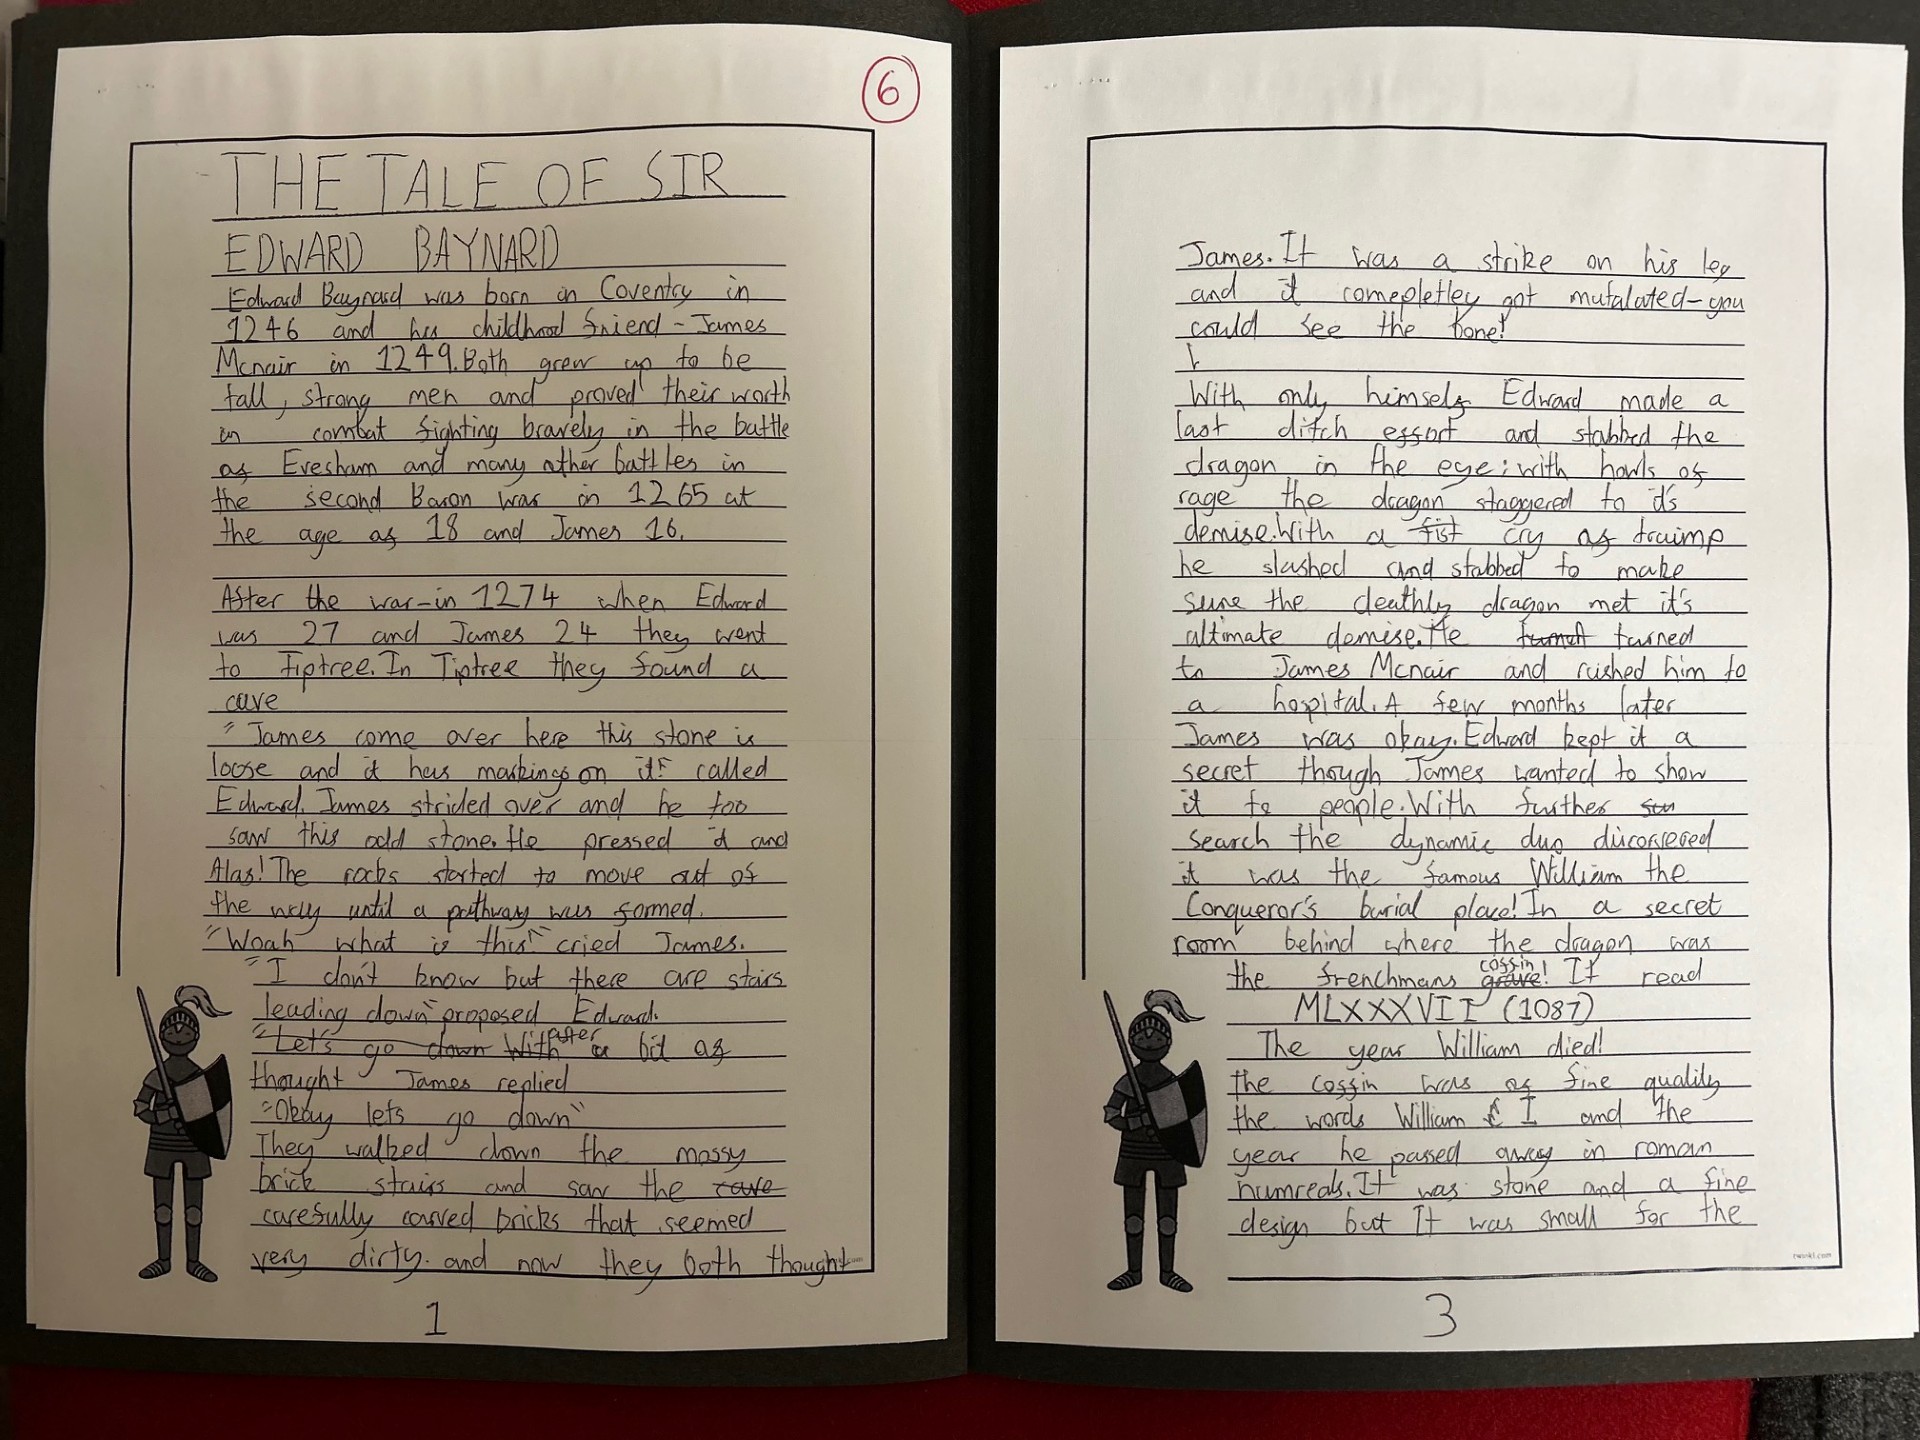 6
THE TALE OF SIR
EDWARD BAYNARD
Edward Baynard was born in Coventry in
1246 and his childhood friend - James
Mcnair in 1249. Both grew up to be
tall, strong men and proved their worth
in combat fighting bravely in the battle
of Evesham and many other battles in
the second Baron war in 1265 at
the age of 18 and James 16.
After the war-in 1274 when Edward
was 27 and James 24 they went
to Tiptree. In Tiptree they found a
cave
"James come over here this stone is
loose and it has markings on it" called
Edward. James strided over and he too
saw this odd stone. He pressed it and
Alas! The rocks started to move out of
the way until a pathway was formed.
"Woah what is this" cried James.
"I don't know but there are stairs
leading down" proposed Edward.
"Let's go down With after a bit of
thought James replied
"Okay lets go down"
They walked down the mossy
brick stairs and saw the cave
carefully carved bricks that seemed
very dirty. and now they both thought
1
James. It was a strike on his leg
and it comepletley got mutalated-you
could see the bone!
With only himself Edward made a
last ditch effort and stabbed the
dragon in the eye; with howls of
rage the dragon staggered to it's
demise. With a fist cry of truimp
he slashed and stabbed to make
sure the deathly dragon met it's
ultimate demise. He turned
to James Mcnair and rushed him to
a hospital. A few months later
James was okay. Edward kept it a
secret though James wanted to show
it to people. With further
search the dynamic duo discorvered
it was the famous William the
Conqueror's burial place! In a secret
room behind where the dragon was
the frenchmans grave coffin! It read
MLXXXVII (1087)
The year William died!
the coffin was of fine quality
the words William I and the
year he passed away in roman
numreals. It was stone and a fine
design but It was small for the
twinkl.com
3